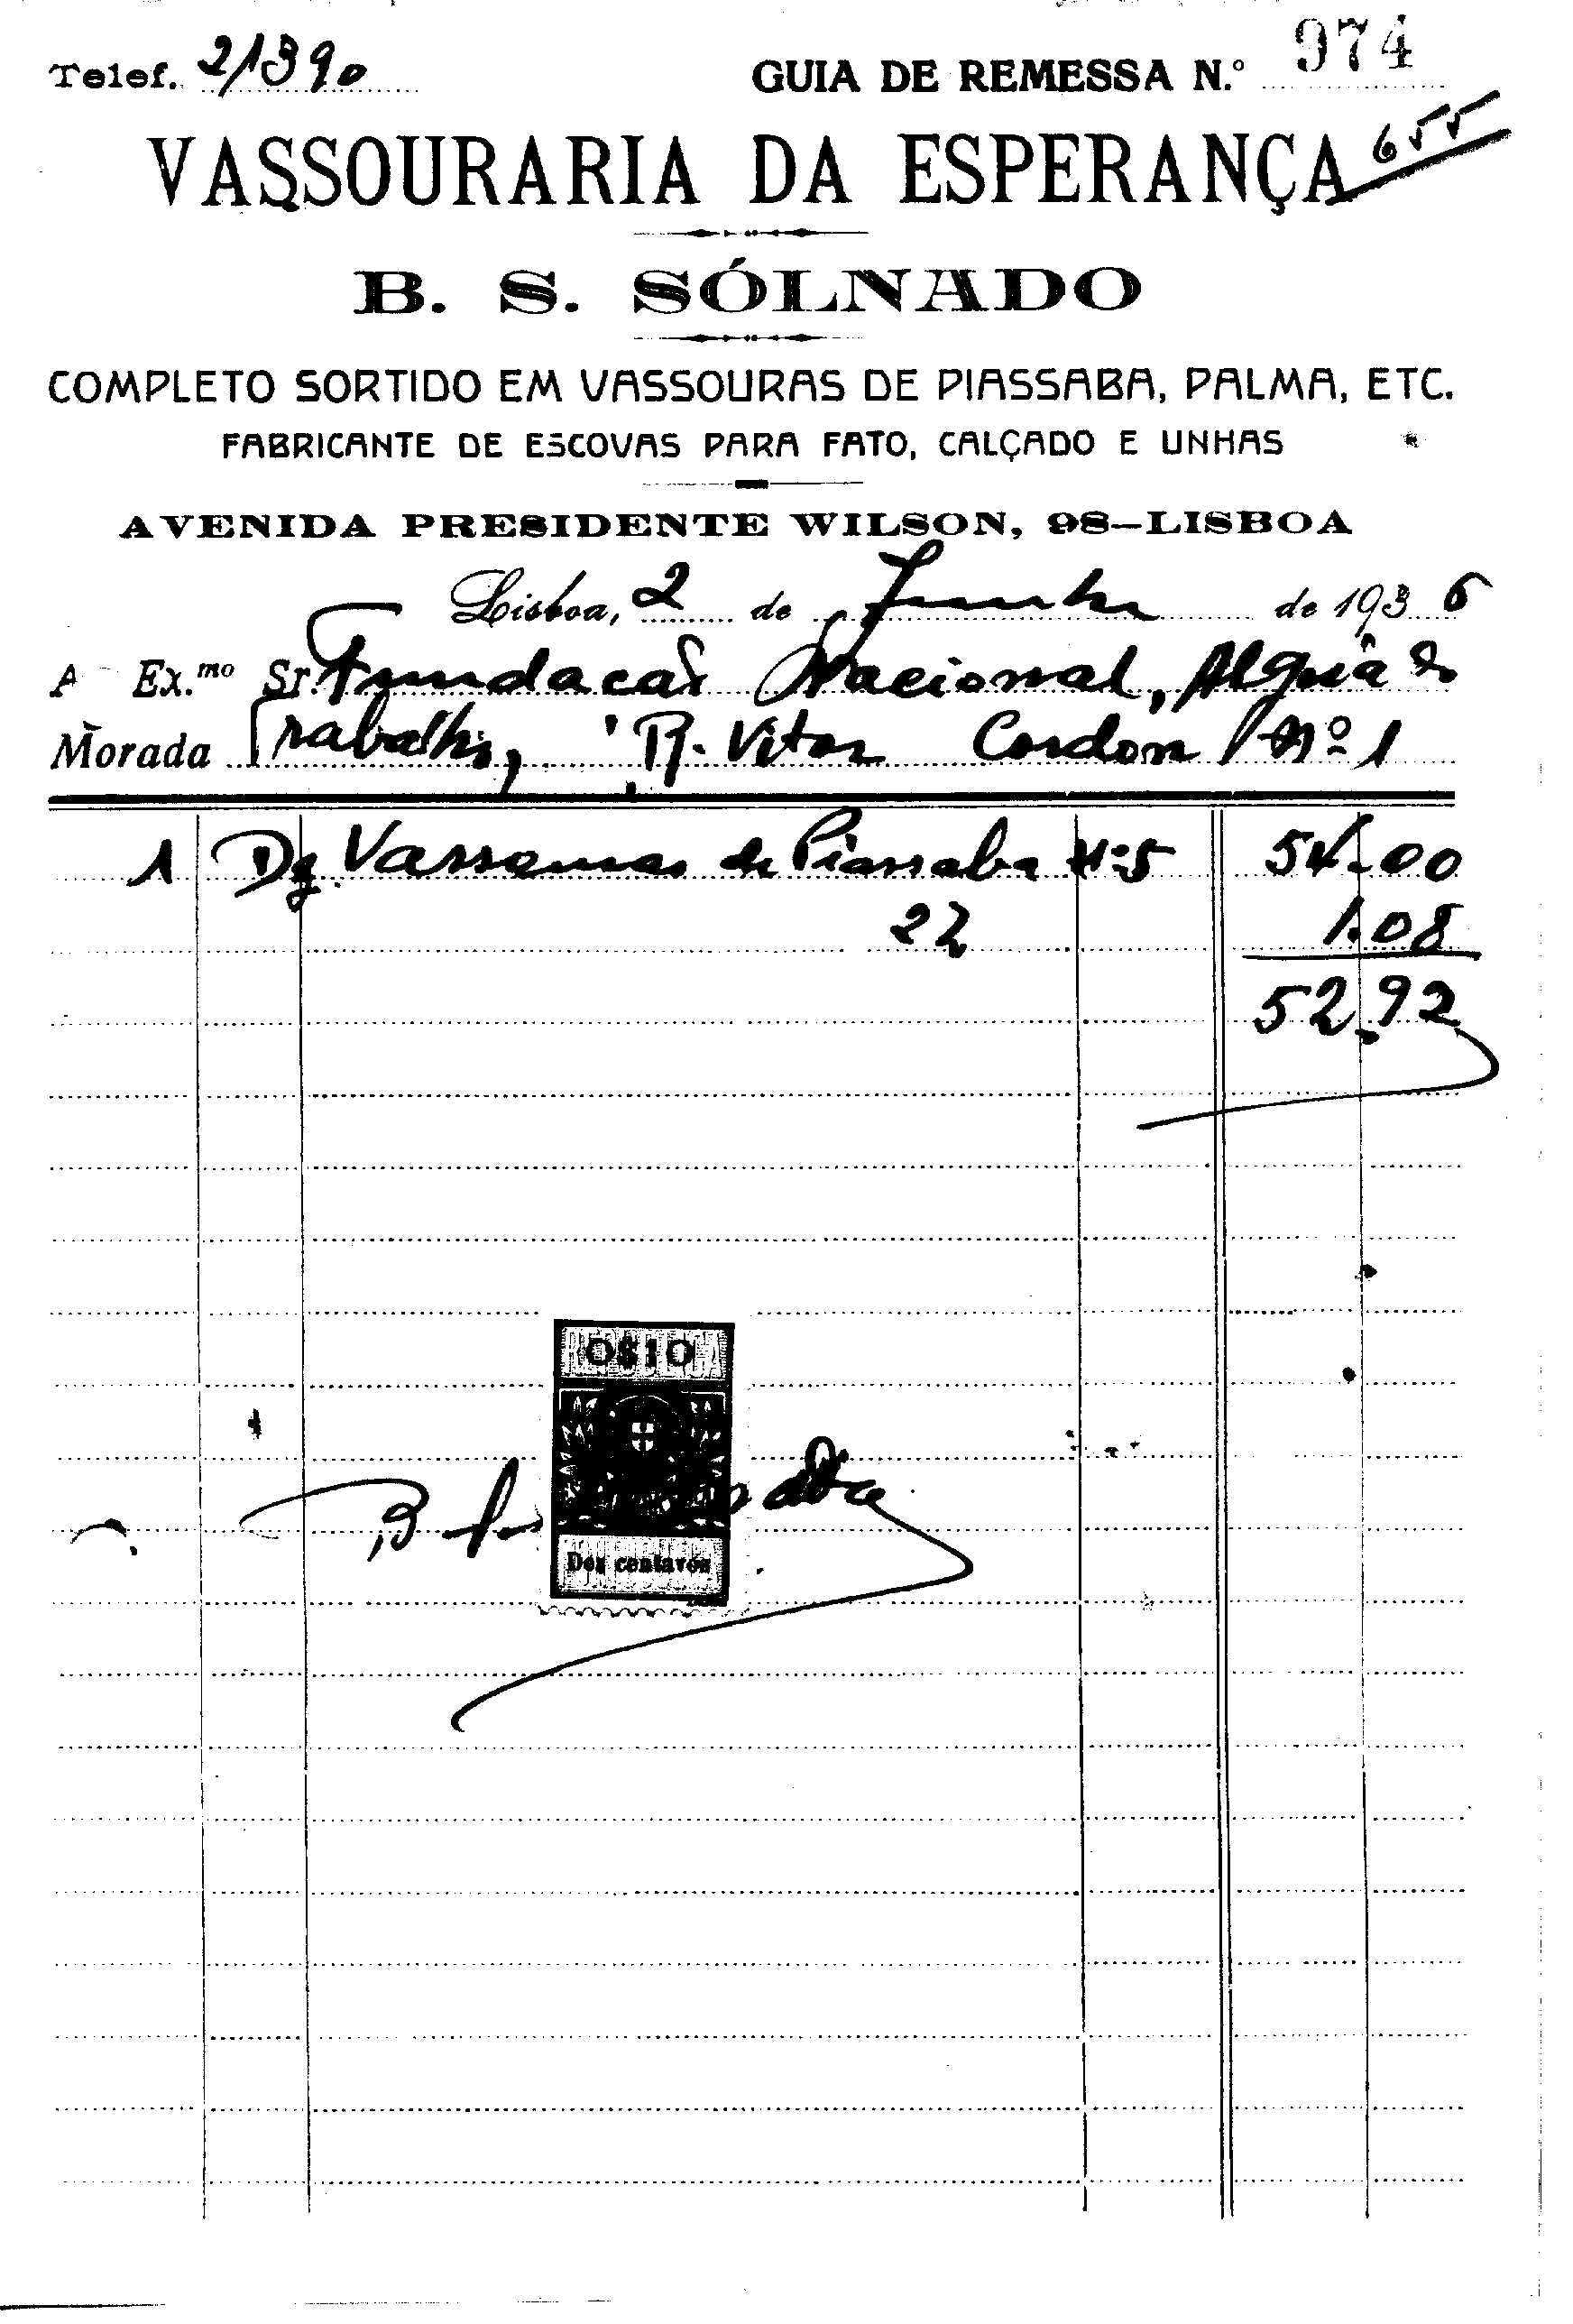 Telef. 21390
GUIA DE REMESSA N.º 974
655
VASSOURARIA DA ESPERANÇA
B. S. SÓLNADO
COMPLETO SORTIDO EM VASSOURAS DE PIASSABA, PALMA, ETC.
FABRICANTE DE ESCOVAS PARA FATO, CALÇADO E UNHAS
AVENIDA PRESIDENTE WILSON, 98—LISBOA
Lisboa, 2 de Junho de 1936
A Ex.mo Sr. Fundacão Nacional, Algria do
Morada Trabalho, R. Vitor Cordon Nº 1
1 Dz. Vassouras de Piassaba Nº 5 54.00
1.08
52.92
0$10
B
Dez centavos